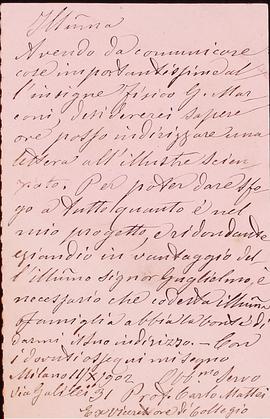 Illũma
Avendo da comunicare
cose importantissime al
l'insigne fisico G. Mar
coni, desidererei sapere
ove posso indirizzare una
lettera all'illustre scien
ziato. Per poter dare sfo
go a tutto quanto è nel
mio progetto, e ridondante
eziandio in vantaggio del
l'illũmo signor Guglielmo, è
necessario che codesta illũma
famiglia abbia la bontà di
darmi il suo indirizzo. — Con
i dovuti ossequi mi segno
Milano 11/X/902 Obb.mo Servo
Via Galilei 31 Prof. Carlo Mattei
Ex Direttore di Collegio